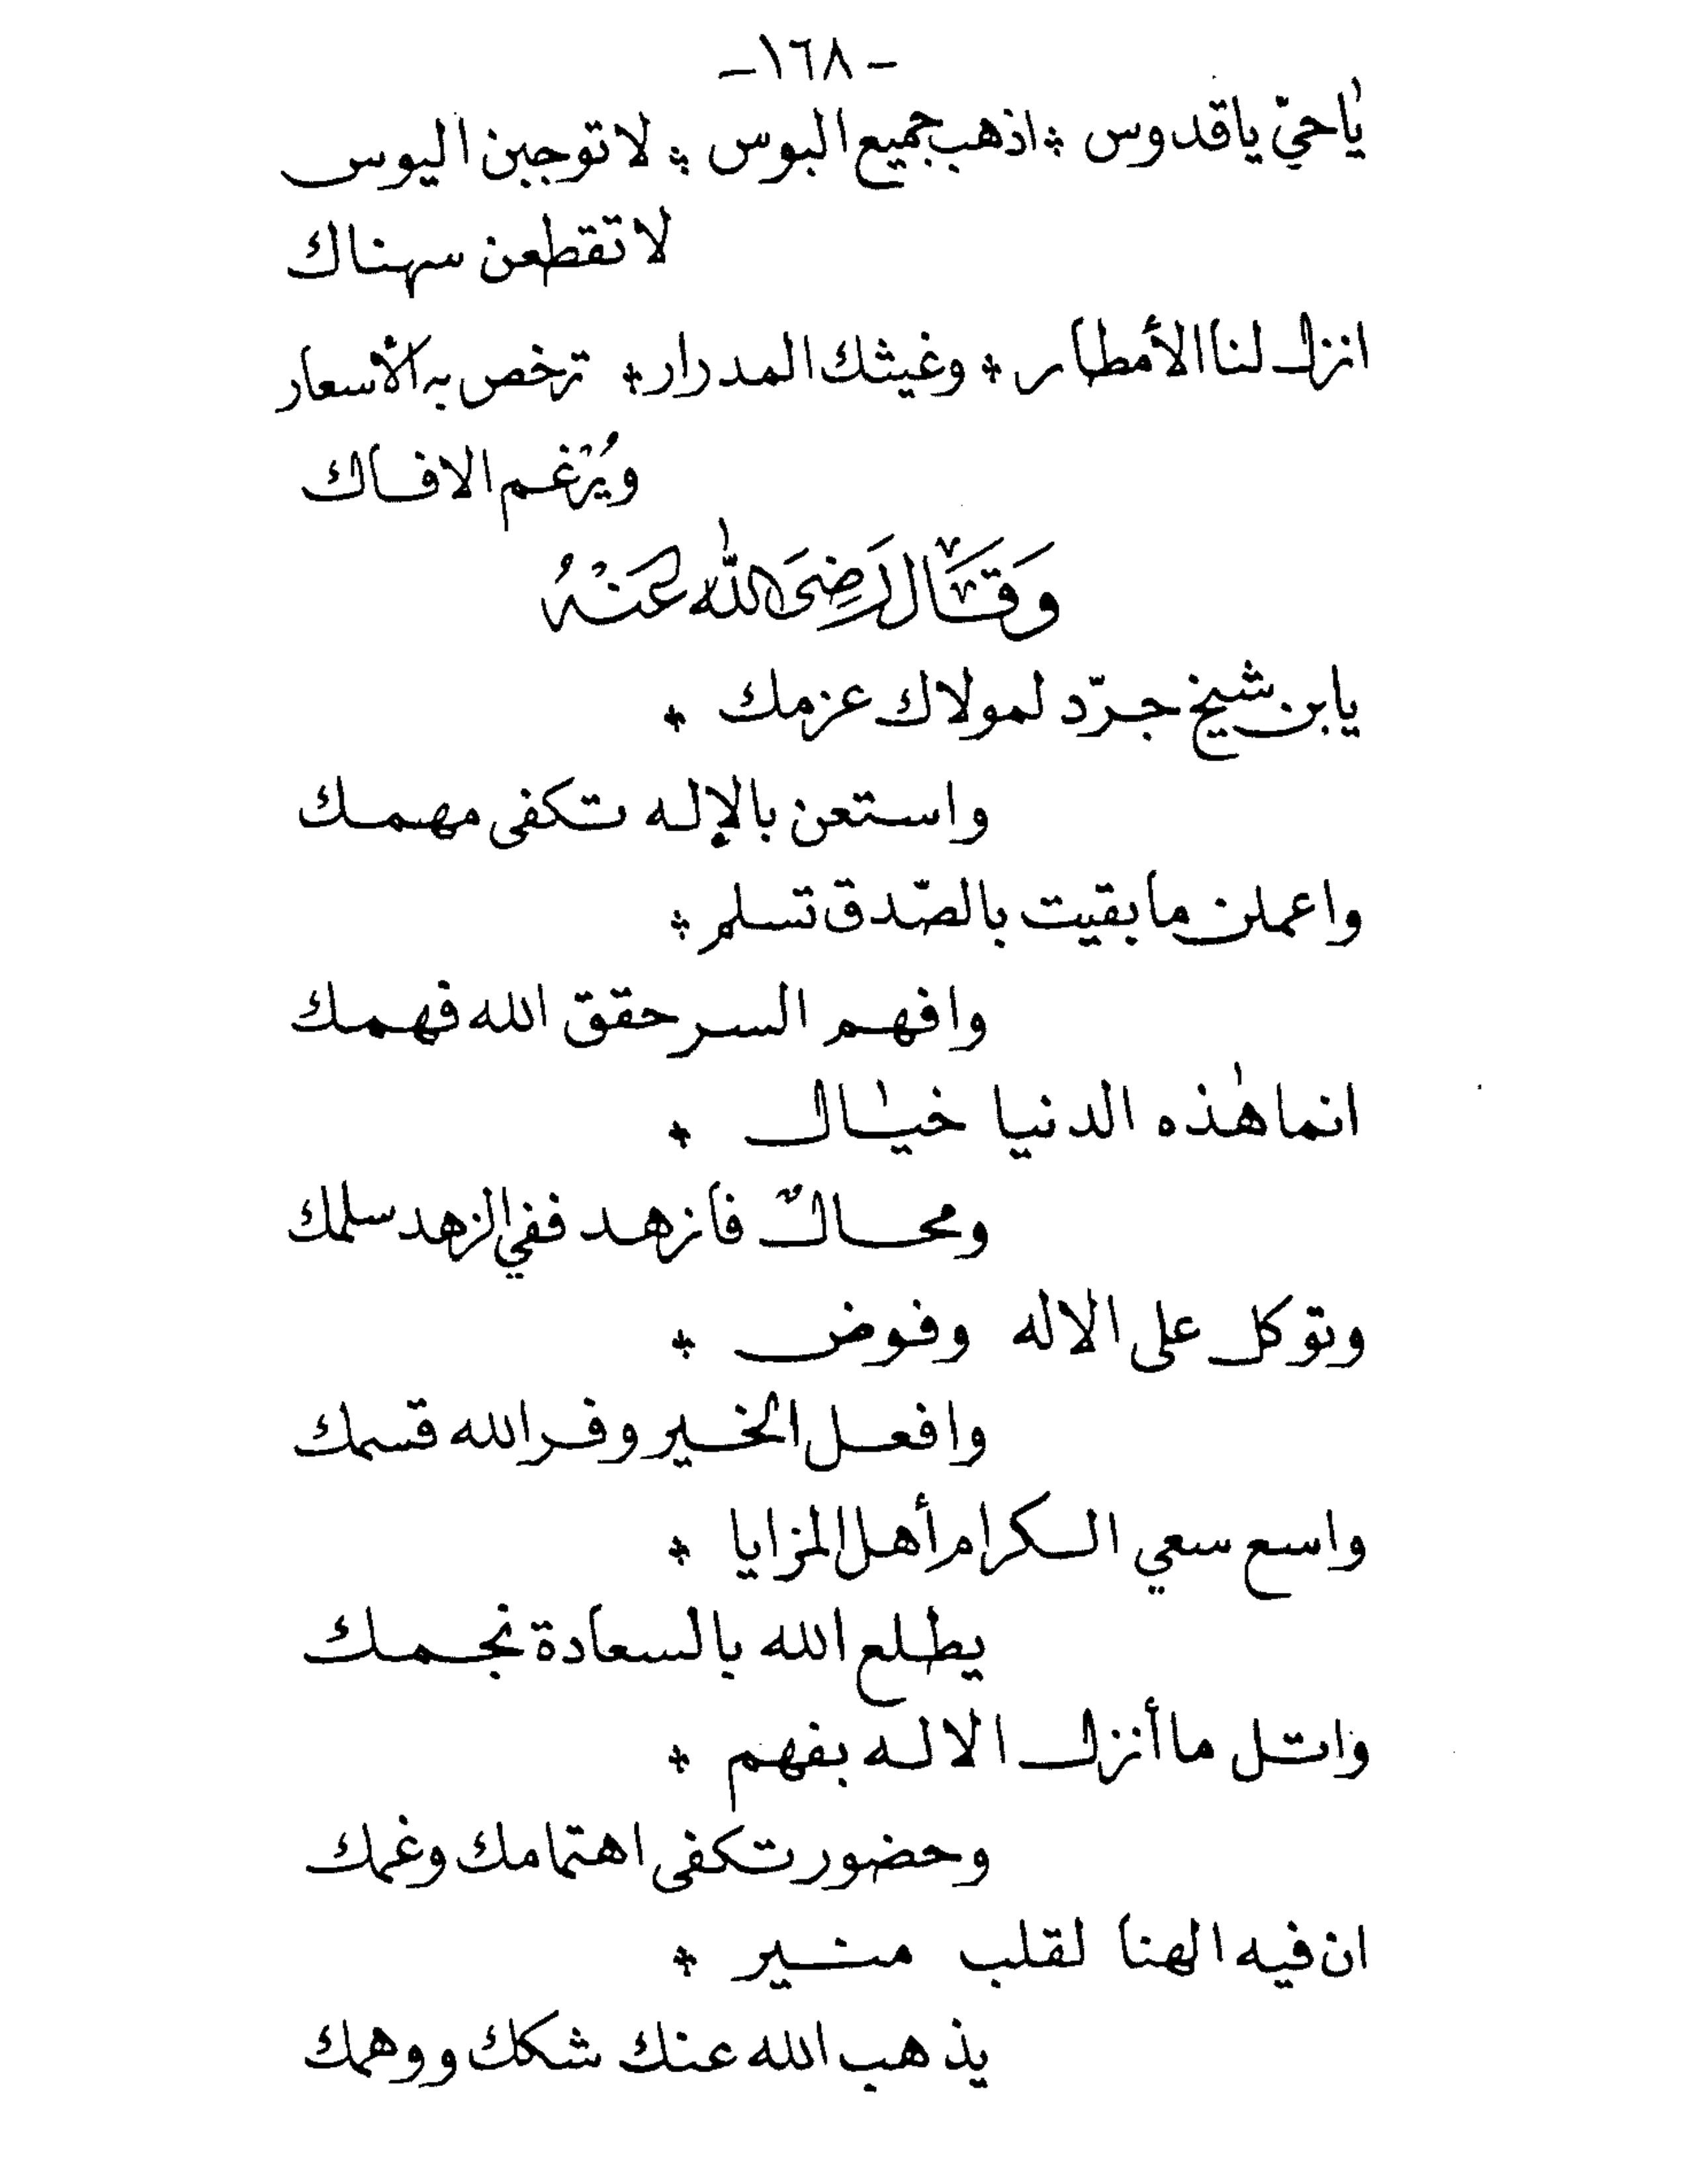 -١٦٨-
ياحيّ ياقدوس * اذهب جميع البوس * لا توجبن اليوس
لا تقطعن سهناك
انزل لنا الأمطار * وغيثك المدرار * ترخص به الأسعار
ويُرْغم الافاك
وَقَالَ رَضِىَ اللهُ عَنْهُ
يابن شيخ جرّد لمولاك عزمك *
واستعن بالإله تكفى مهمك
واعملن ما بقيت بالصّدق تسلم *
وافهم السر حقق الله فهمك
انما هٰذه الدنيا خيال *
ومحالٌ فازهد ففي الزهد سلمك
وتوكل على الاله وفوض *
وافعل الخير وفر الله قسمك
واسع سعي الكرام أهل المزايا *
يطلع الله بالسعادة نجمك
واتل ما أنزل الاله بفهم *
وحضور تكفى اهتمامك وغمك
ان فيه الهنا لقلب منير *
يذهب الله عنك شكك ووهمك